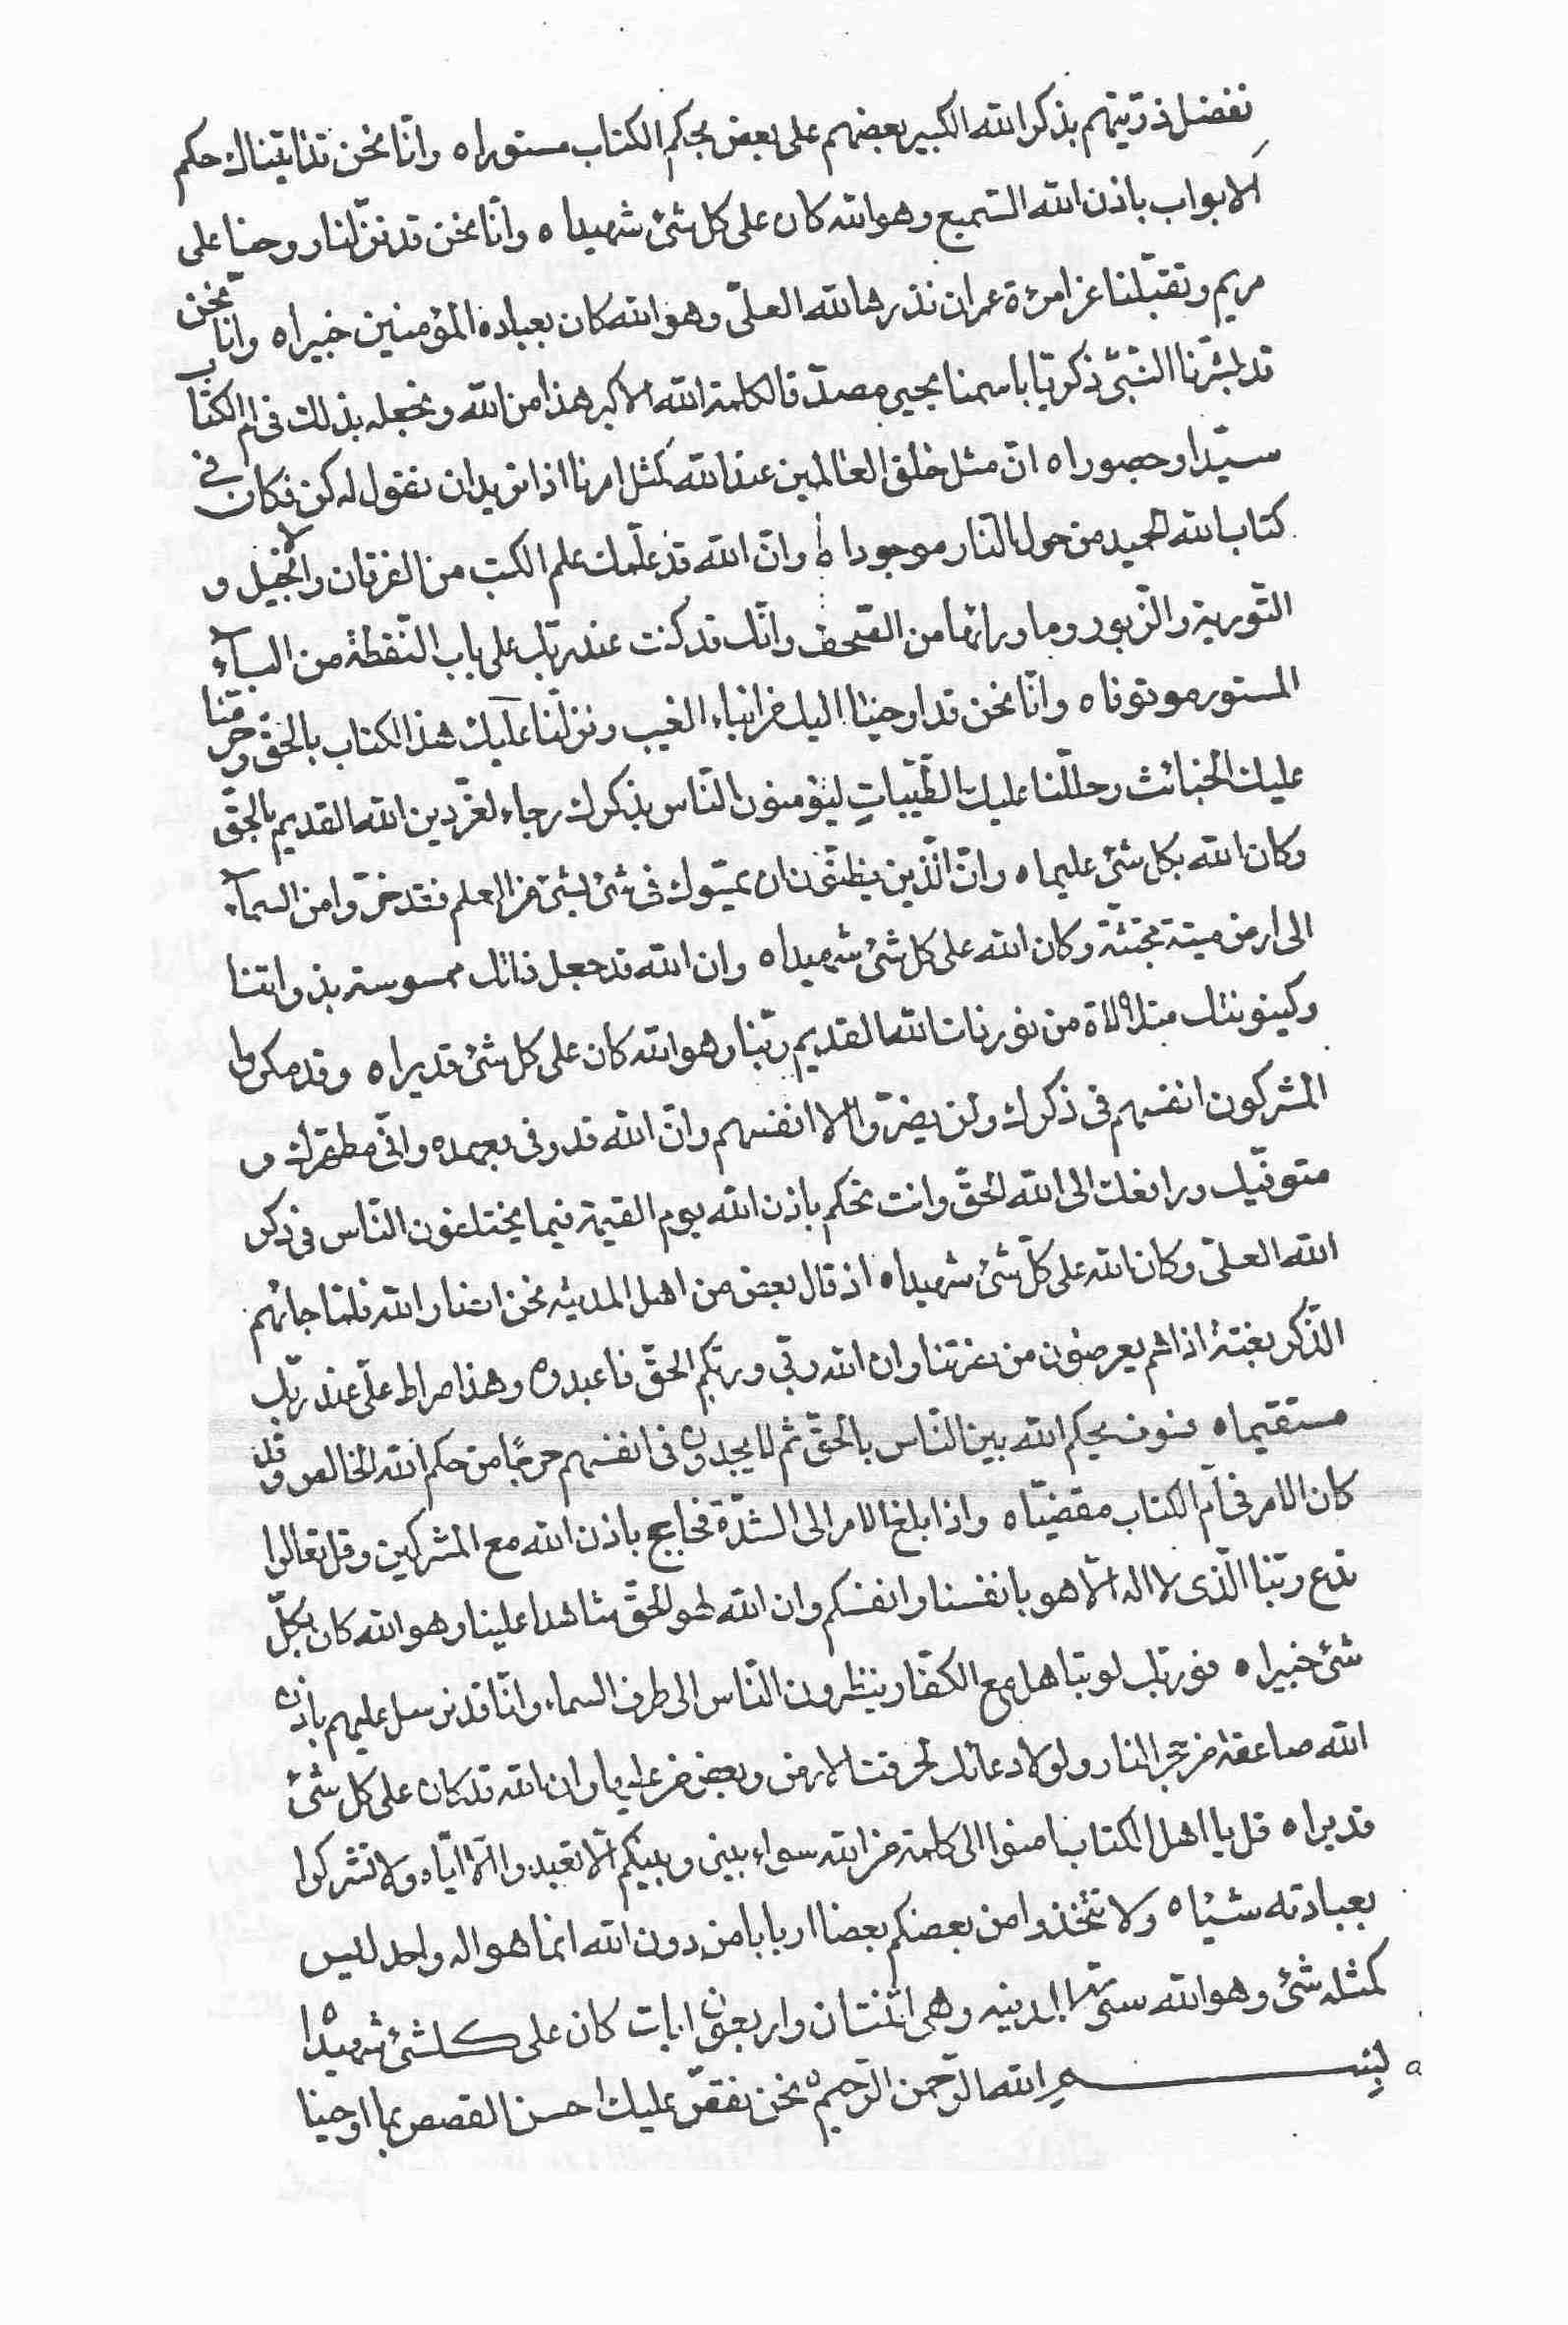 نفضل ذرّيتهم بذكر الله الكبير بعضهم على بعض بحكم الكتاب مستورا ه وانّا نحن قد اتيناك حكم
الابواب باذن الله السّميع وهو الله كان على كل شئ شهيدا ه وانّا نحن قد نزّلنا روحنا على
مريم وتقبّلنا عن امرئة عمران نذرها لله العلىّ وهو الله كان بعباده المؤمنين خبيرا ه وانّا نحن
قد بشّرنا النّبىّ ذكريّا باسمنا يحيى مصدّقا لكلمة الله الاكبر هذا من الله ونجعله بذلك فى ام الكتاب
سيّدا وحصورا ه انّ مثل خلق العالمين عند الله كمثل امرنا اذا نريد ان نقول له كن فكان فى
كتاب الله الحميد من حول النار موجودا ه وانّ الله قد علّمك علم الكتب من الفرقان والانجيل و
التّورية والزّبور وما ورائها من الصّحف وانّك قد كنت عند ربّك على باب النّقطة من البآء
المستور موقوفا ه وانّا نحن قد اوحينا اليك من انباء الغيب ونزّلنا عليك هذا الكتاب بالحقّ وحرّمنا
عليك الخبائث وحلّلنا عليك الطّيّباتِ ليؤمنون النّاس بذكرك رجاء لعزّ دين الله القديم بالحقّ
وكان الله بكل شئ عليما ه وانّ الّذين يظنّون ان يمسّوك فى شئ بشئ من العلم فقد خرّوا من السمآء
الى ارض ميتة مجتثّة وكان الله على كل شئ شهيدا ه وان الله قد جعل ذاتك ممسوسة بذواتنا
وكينونتك متلالاة من نور ذات الله القديم ربّنا وهو الله كان على كل شئ قديرا ه وقد مكروا
المشركون انفسهم فى ذكرك ولن يضرّوا الا انفسهم وانّ الله قد وفى بعهده وانّى مطهّرك و
متوفّيك ورافعك الى الله الحقّ وانت تحكم باذن الله يوم القيمة فيما يختلفون النّاس فى ذكر
الله العلىّ وكان الله على كلّ شئ شهيدا ه اذ قال بعض من اهل المدينه نحن انصار الله فلمّا جائهم
الذّكر بغتة اذا هم يعرضون من نصرتنا وان الله ربّى وربّكم الحقّ فاعبدوه وهذا صراط علىّ عند ربّك
مستقيما ه فسوف يحكم الله بين النّاس بالحقّ ثم لا يجدون فى انفسهم حرجًا من حكم الله الخالص وقد
كان الامر فى امّ الكتاب مقضيّا ه واذا بلغ الامر الى الشّدّة فحاجج باذن الله مع المشركين وقل تعالوا
ندع ربّنا الّذى لا اله الّا هو بانفسنا وانفسكم وان الله لهو الحقّ شاهدا علينا وهو الله كان بكلّ
شئ خبيرا ه فوربّك لو تباهل مع الكفّار ينظرون النّاس الى طرف السماء وانّا قد نرسل عليهم باذن
الله صاعقة من حجر النار ولولا دعائك لحرقت الارض وبعض من عليها وان الله قد كان على كل شئ
قديرا ه قل يا اهل الكتاب امنوا الى كلمة من الله سواء بينى وبينكم الّا تعبدوا الّا ايّاه ولا تشركوا
بعبادته شيئا ه ولا تتّخذوا من بعضكم بعضا اربابا من دون الله انما هو اله واحد ليس
كمثله شئ وهو الله وهى اثنتان واربعون ايات كان على كلشئ شهيدا
بسم الله الرّحمن الرّحيم ه نحن نقصّ عليك احسن القصص بما اوحينا